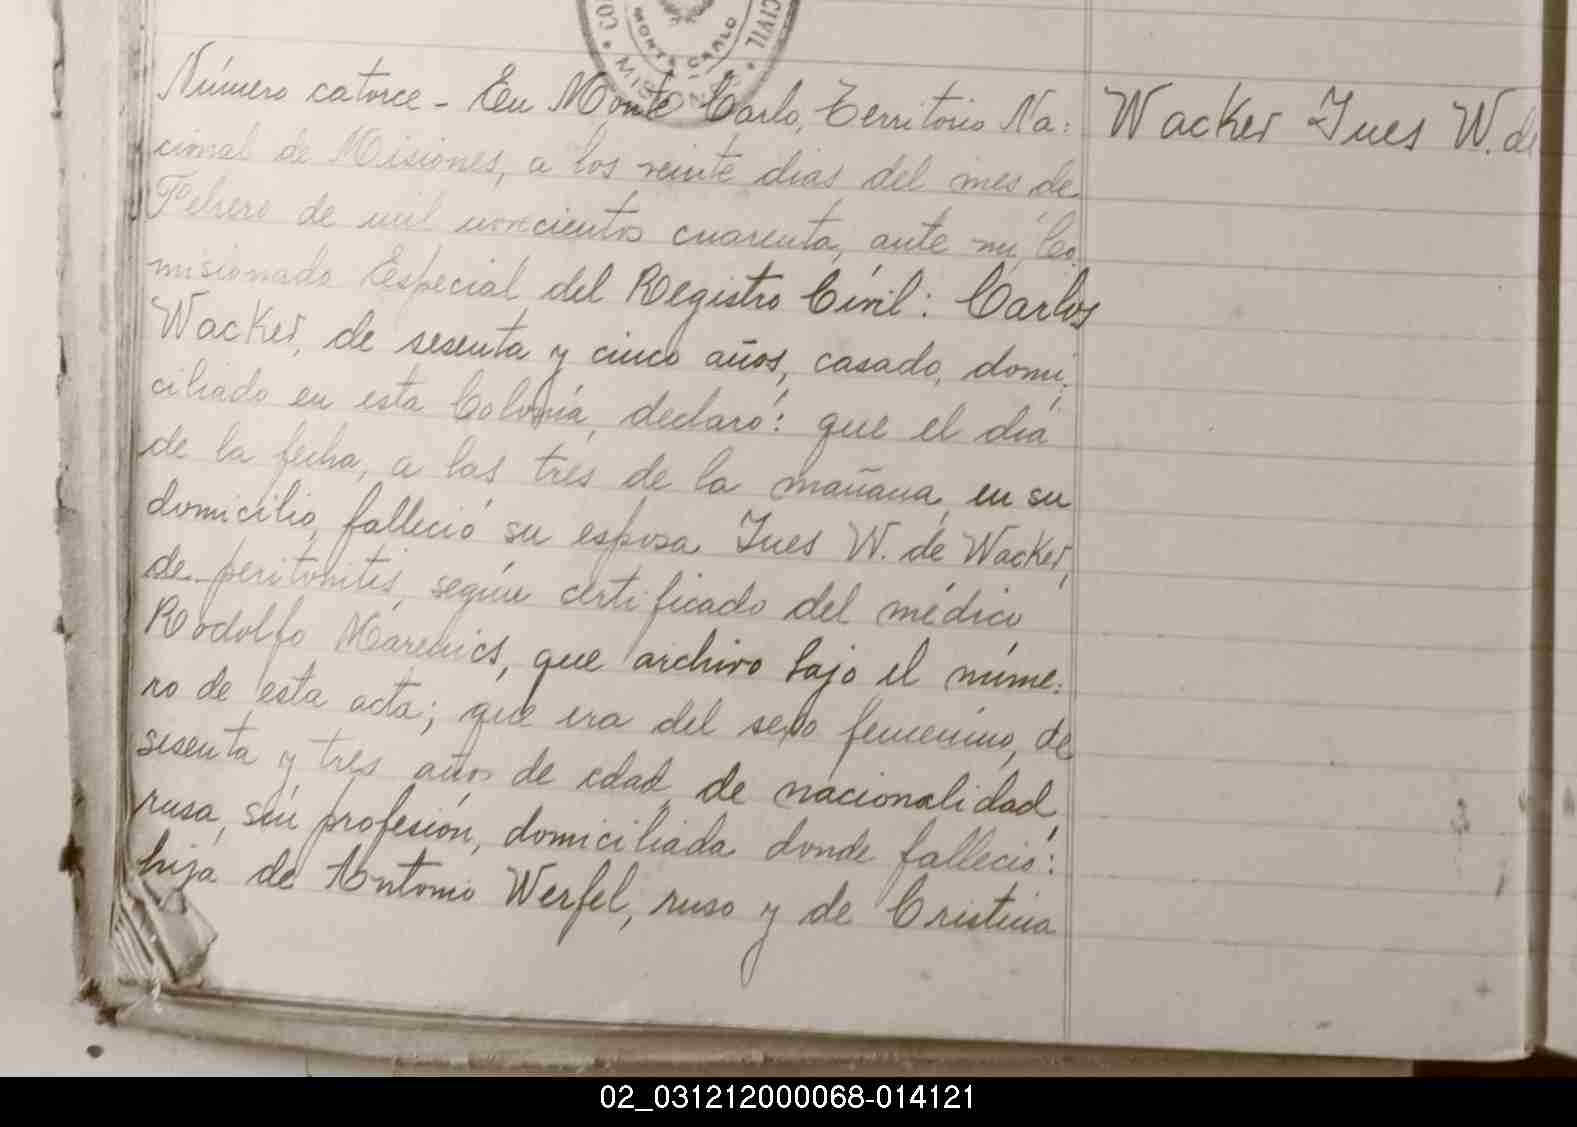 CIVIL
MONTE CARLO
Número catorce - En Monte Carlo, Territorio Na=
Wacker Ines W. de
cional de Misiones, a los veinte dias del mes de
Febrero de mil novecientos cuarenta, ante mi, Co=
misionado Especial del Registro Civil: Carlos
Wacker, de sesenta y cinco años, casado, domi=
ciliado en esta Colonia, declaró: que el día
de la fecha, a las tres de la mañana, en su
domicilio, falleció su esposa Ines W. de Wacker,
de peritonitis, según certificado del médico
Rodolfo Marenics, que archivo bajo el núme=
ro de esta acta; que era del sexo femenino, de
sesenta y tres años de edad, de nacionalidad
rusa, sin profesión, domiciliada donde falleció:
hija de Antonio Werfel, ruso y de Cristina
02_031212000068-014121